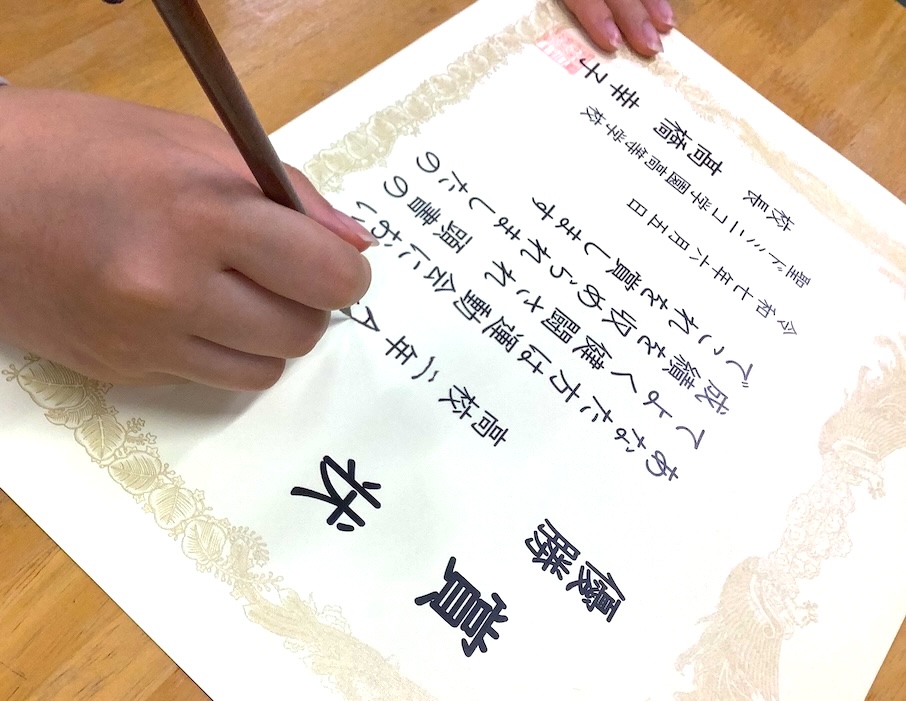 賞状
優勝
高校三年A
あなた方は運動会におい
てよく健闘され頭書の
成績を収められましたの
でこれを賞します
令和七年六月五日
聖ドミニコ学園高等学校
校長 高橋幸子